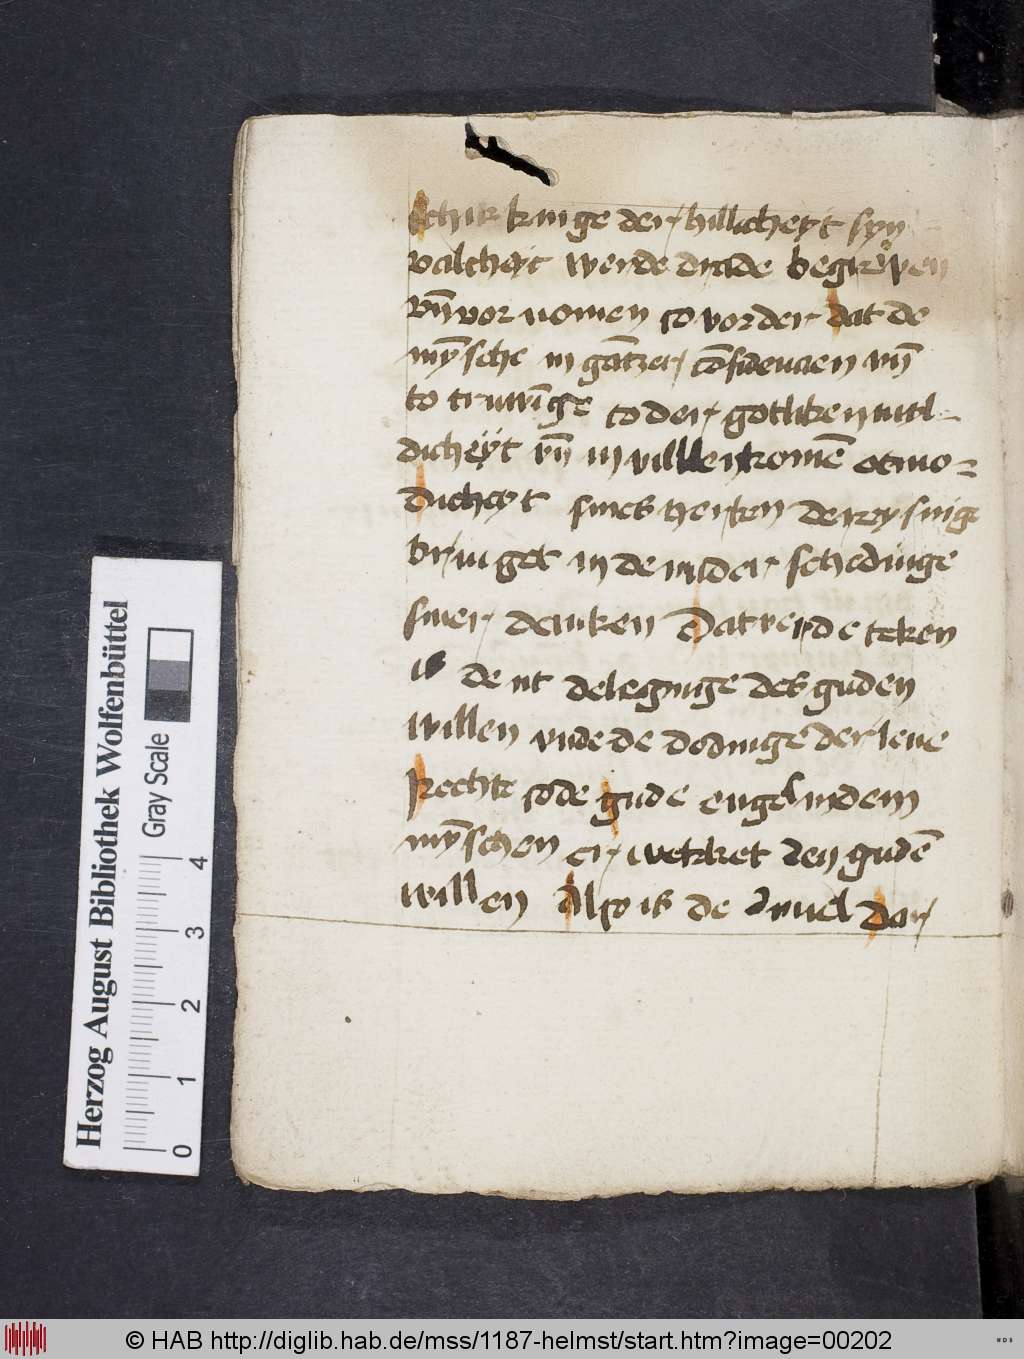 schir kinge der hillicheyt syn
valcheyt werde drade begripen
vn̄ vor nomen so vorder dat de
mȳsche in gātzer cōfidencien vn̄
to truwīge to der gotliken mil-
dicheyt vn̄ in vullenkomē otmo-
dicheyt sines herten de
bringet in de schedinge
siner danken Dat verde teken
is de ut deleginge des guden
willen vnde de dodinge der leue
Rechte so de gude engel in dem
mȳschen er wecket den gudē
willen Also is de duuel dar
Herzog August Bibliothek Wolfenbüttel
Gray Scale
0 1 2 3 4
© HAB http://diglib.hab.de/mss/1187-helmst/start.htm?image=00202